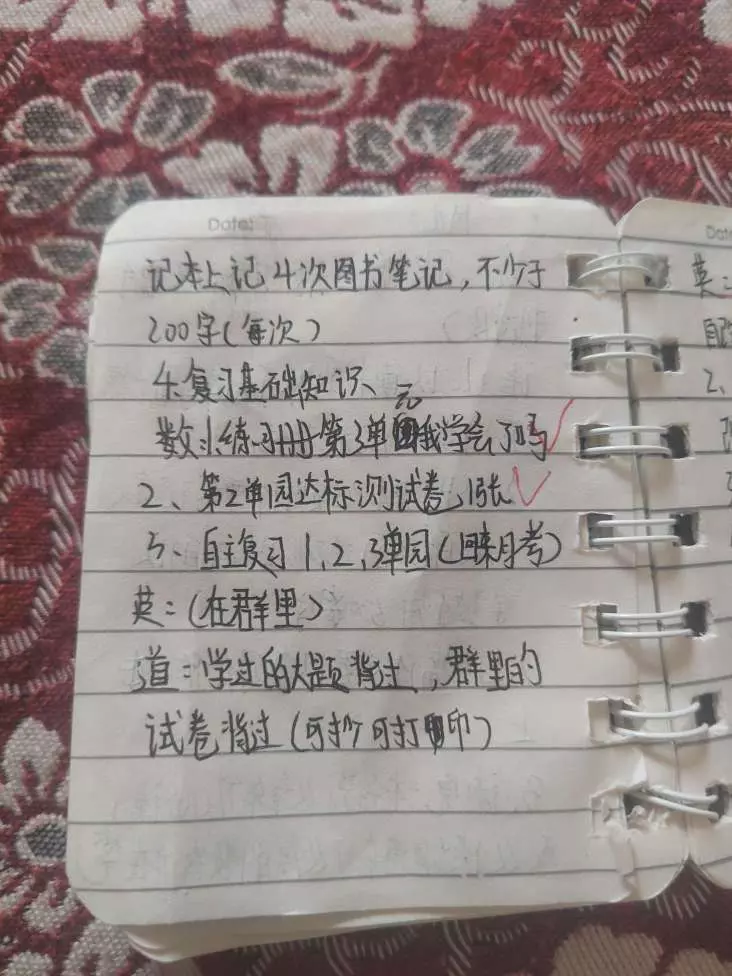 Date:
记本上记4次图书笔记,不少于
200字(每次)
4.复习基础知识、
数:1.练习册第3单元我学会了吗
2、第2单园达标测试卷1张
3、自主复习1、2、3单园(回来月考)
英:(在群里)
道:学过的大题背过,群里的
试卷背过(可抄可打印)
Dat
英:
2、